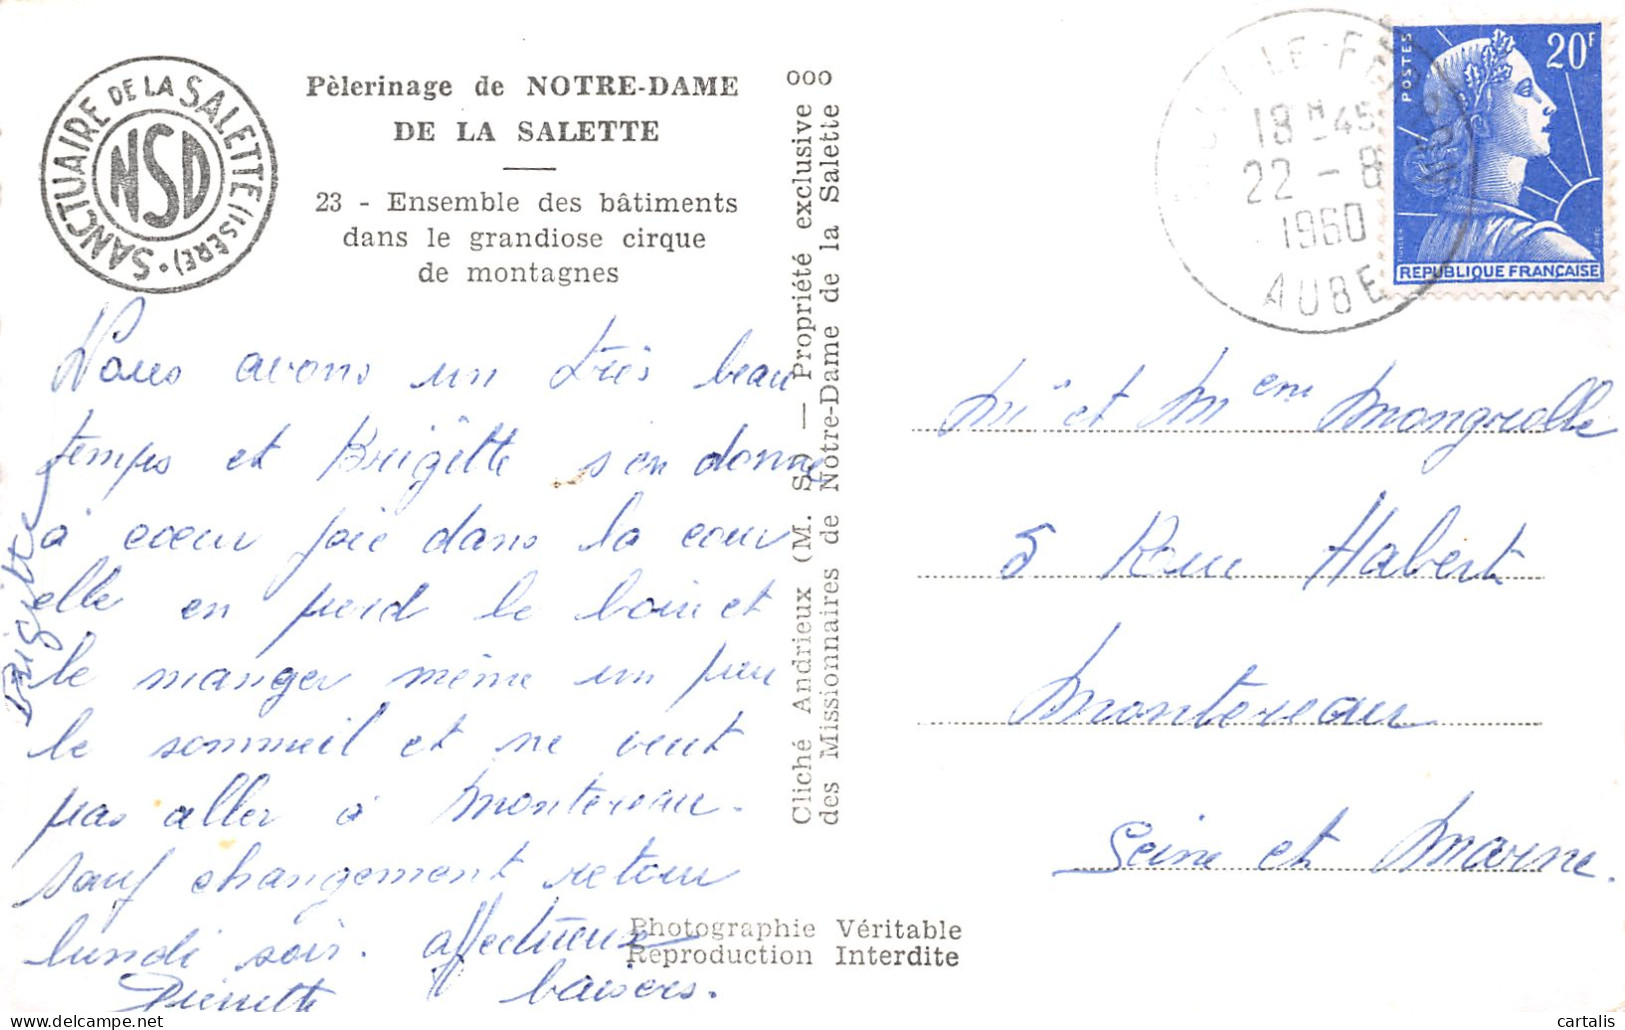 SANCTUAIRE DE LA SALETTE (ISÈRE) •
NSD
Pèlerinage de NOTRE-DAME
DE LA SALETTE
23 - Ensemble des bâtiments
dans le grandiose cirque
de montagnes
Nous avons un très beau
temps et Brigitte s'en donne
à coeur joie dans la cour
elle en perd le boire et
le manger même un peu
le sommeil et ne veut
pas aller à Montereau.
Sauf changement retour
lundi soir. affectueux
baisers.
Pierrette
Brigitte
ooo
Cliché Andrieux (M. S.) — Propriété exclusive
des Missionnaires de Notre-Dame de la Salette
Photographie Véritable
Reproduction Interdite
18 H 45
22 - 8
1960
AUBE
POSTES
20F
REPUBLIQUE FRANÇAISE
Mr et Mme Mongrolle
5 Rue Habert
Montereau
Seine et Marne.
cartalis